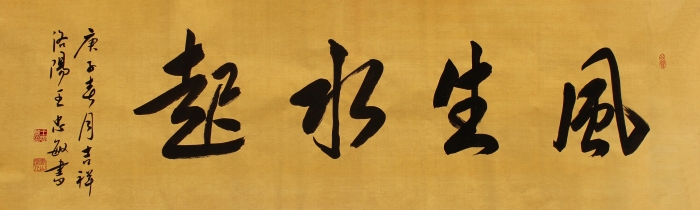 風生水起
庚子春月吉祥
洛陽王忠敏書